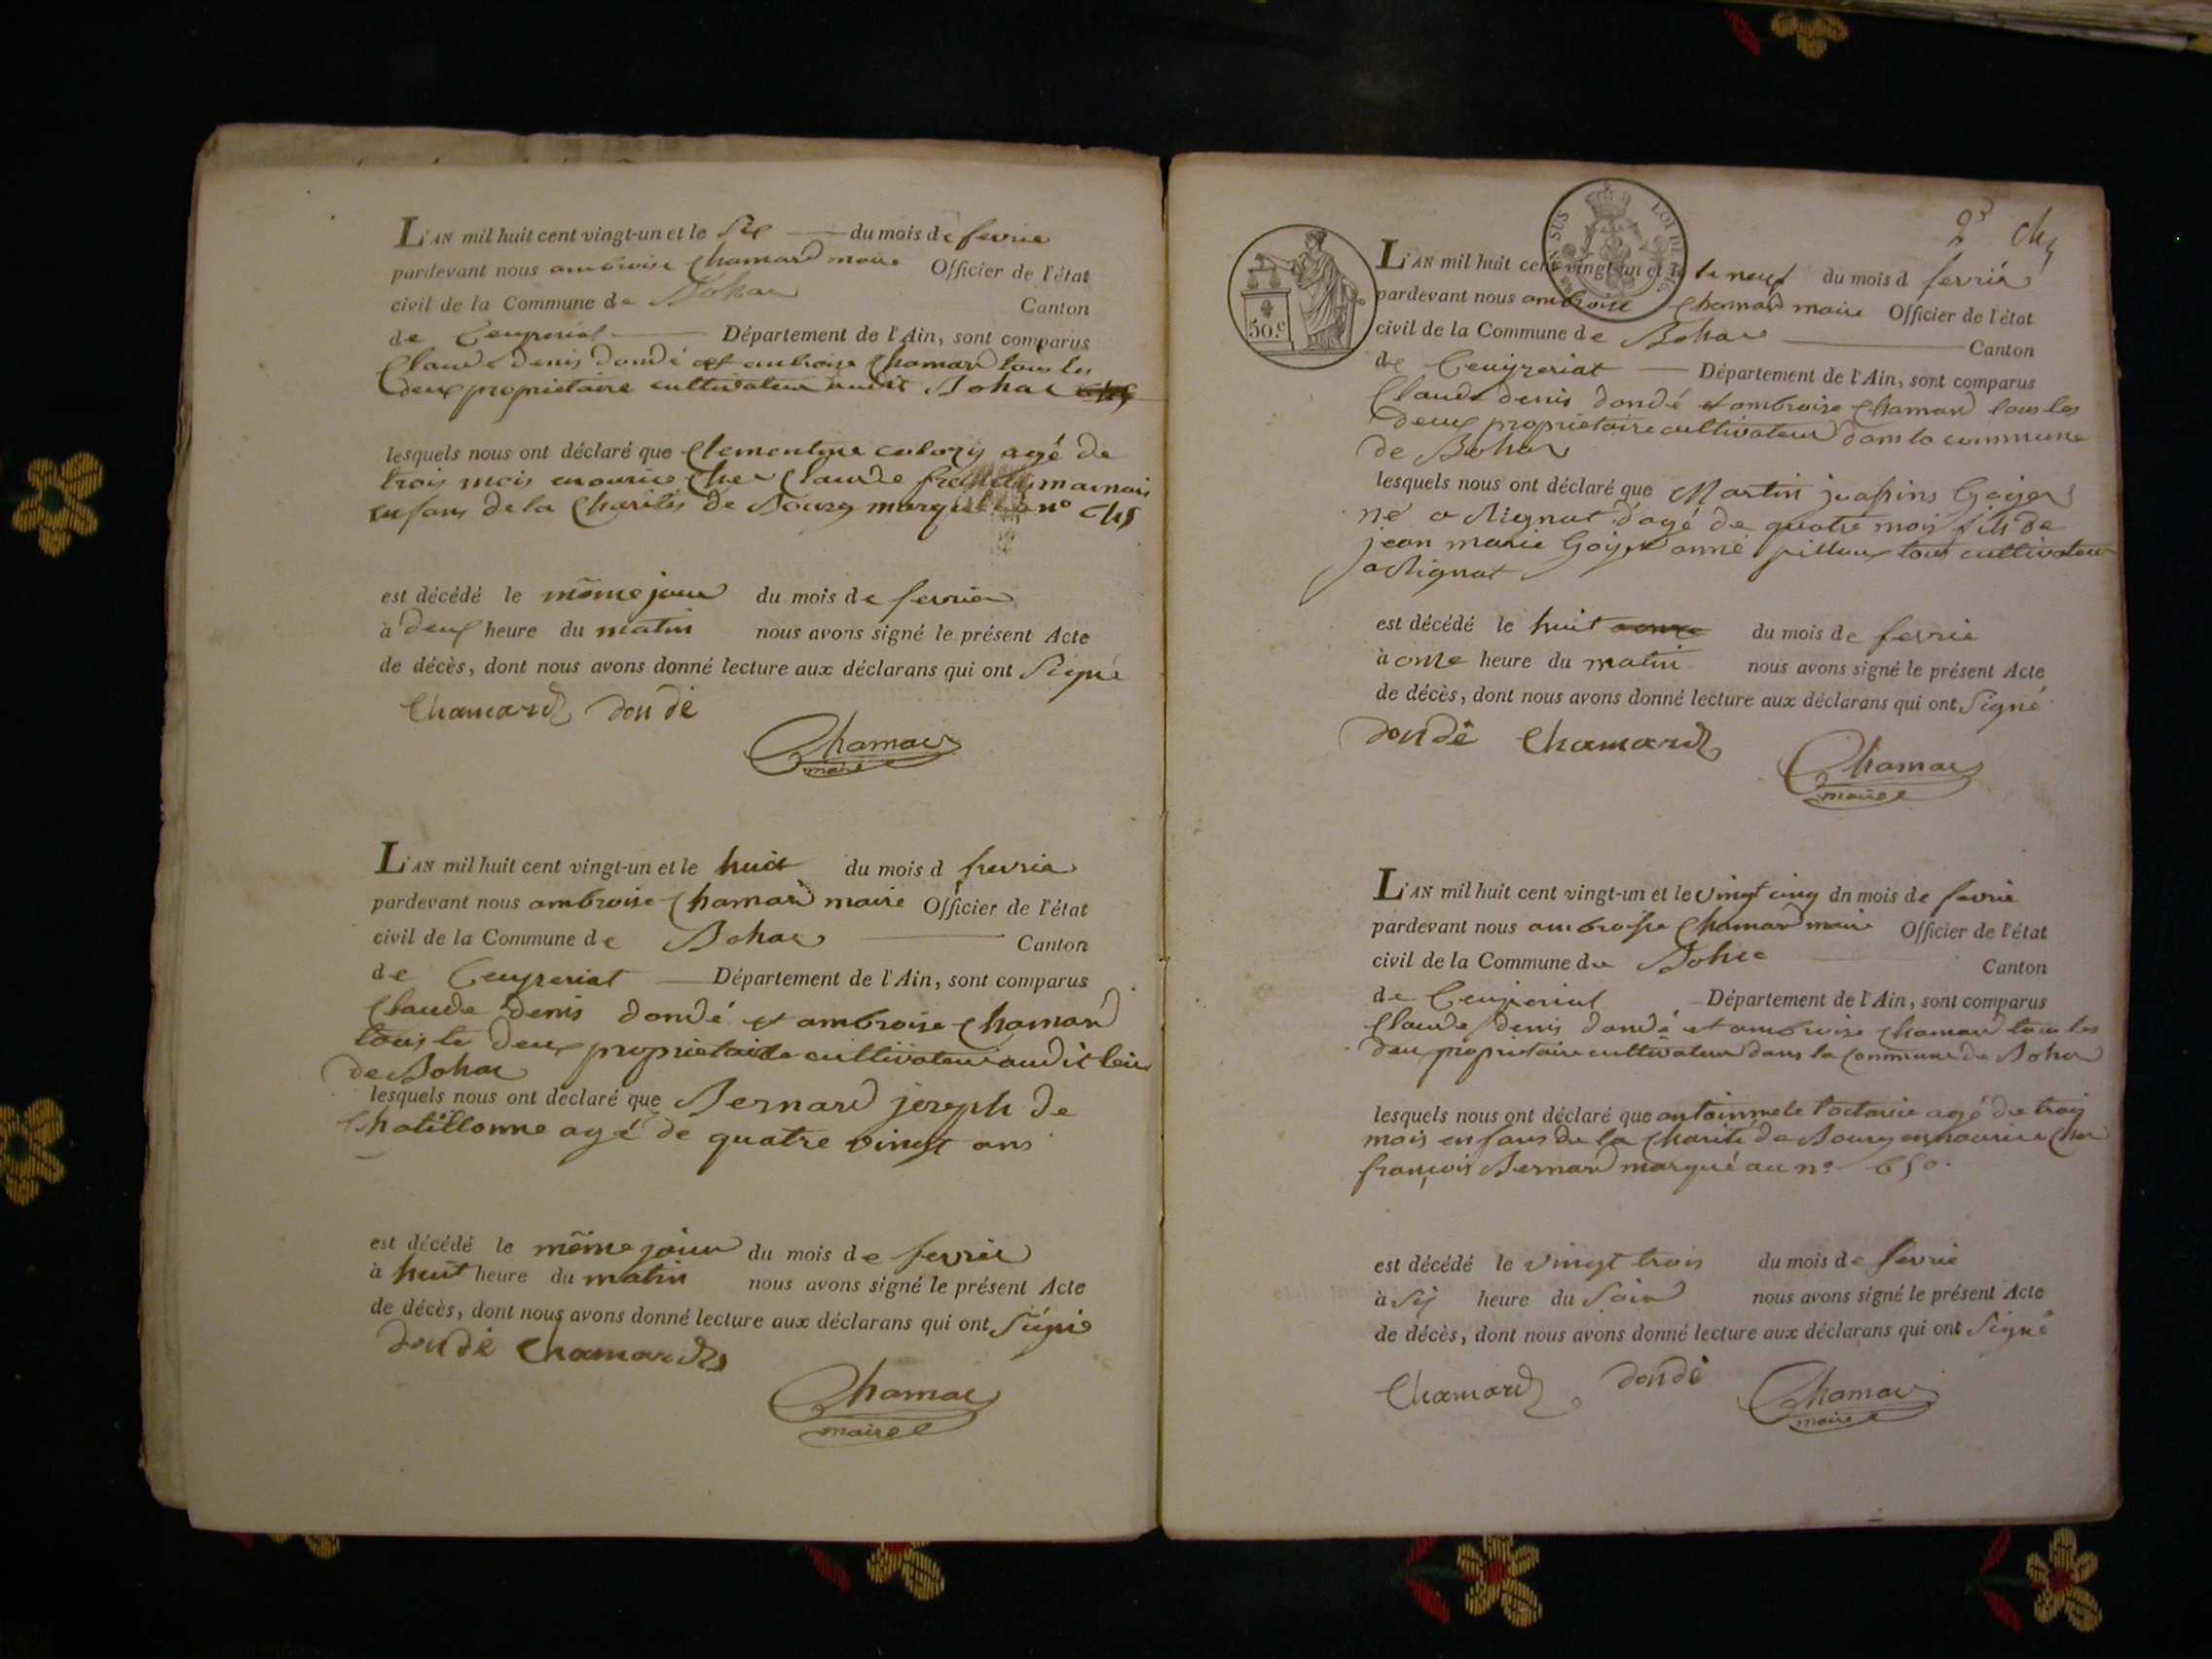 L'AN mil huit cent vingt-un et le Six du mois de fevrie
pardevant nous ambroise Chamard maire Officier de l'état
civil de la Commune de Bohas Canton
de Ceyzeriat Département de l'Ain, sont comparus
Claude denis dondé et ambroise Chamard tous les
deux proprietaire cultivateur audit Bohas
lesquels nous ont déclaré que Clementine agé de
trois mois Claude
enfans de la Charités de Bourg n°
est décédé le même jour du mois de fevrier
à deux heure du matin nous avons signé le présent Acte
de décès, dont nous avons donné lecture aux déclarans qui ont Signé
Chamard dondé
Chamard
maire
L'AN mil huit cent vingt-un et le huit du mois d fevrie
pardevant nous ambroise Chamard maire Officier de l'état
civil de la Commune de Bohas Canton
de Ceyzeriat Département de l'Ain, sont comparus
Claude denis dondé et ambroise Chamard
tous le deux proprietaire cultivateur audit leiu
de Bohas
lesquels nous ont declaré que Bernard joseph de
Chatillonne agé de quatre vingt ans
est décédé le même jour du mois de fevrier
à huit heure du matin nous avons signé le présent Acte
de décès, dont nous avons donné lecture aux déclarans qui ont Signé
dondé Chamard
Chamard
maire
50.c
SUS LOI DE
L'AN mil huit cent vingt-un et le le neuf du mois d fevrier
pardevant nous ambroise Chamard maire Officier de l'état
civil de la Commune de Bohas Canton
de Ceyzeriat Département de l'Ain, sont comparus
Claude denis dondé et ambroise Chamard tous les
deux proprietaire cultivateur dans la commune
de Bohas
lesquels nous ont déclaré que Martin
né a Rignat d'agé de quatre mois fils de
jean marie Goiyer anne tous cultivateur
a Rignat
est décédé le huit du mois de fevrie
à onze heure du matin nous avons signé le présent Acte
de décès, dont nous avons donné lecture aux déclarans qui ont Signé
dondé Chamard
Chamard
maire
L'AN mil huit cent vingt-un et le vingt cinq dn mois de fevrie
pardevant nous ambroise Chamard maire Officier de l'état
civil de la Commune de Bohas Canton
de Ceyzeriat Département de l'Ain, sont comparus
Claude denis dondé et ambroise Chamard tous les
deux proprietaire cultivateur dans la commune de Bohas
lesquels nous ont déclaré que agé de trois
mois enfans de la Charité de Bourg en nourice Cher
françois Bernard marqué au n° 650.
est décédé le vingt trois du mois de fevrie
à Six heure du Soir nous avons signé le présent Acte
de décès, dont nous avons donné lecture aux déclarans qui ont Signé
Chamard dondé
Chamard
maire